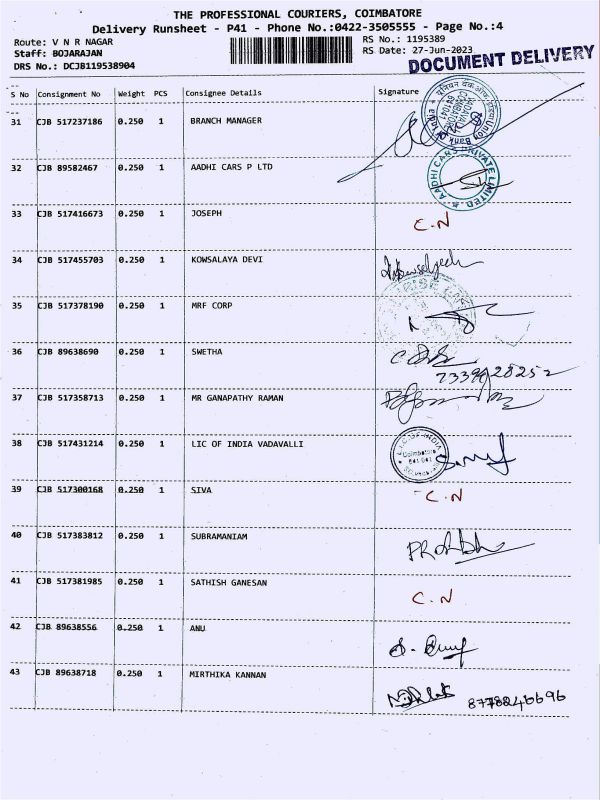 THE PROFESSIONAL COURIERS, COIMBATORE
Delivery Runsheet - P41 - Phone No.:0422-3505555 - Page No.:4
Route: V N R NAGAR
Staff: BOJARAJAN
DRS No.: DCJB119538904
RS No.: 1195389
RS Date: 27-Jun-2023
DOCUMENT DELIVERY
S No Consignment No Weight PCS Consignee Details Signature
31 CJB 517237186 0.250 1 BRANCH MANAGER
32 CJB 89582467 0.250 1 AADHI CARS P LTD
AADHI CARS PRIVATE LIMITED
33 CJB 517416673 0.250 1 JOSEPH C.N
34 CJB 517455703 0.250 1 KOWSALAYA DEVI
35 CJB 517378190 0.250 1 MRF CORP
36 CJB 89638690 0.250 1 SWETHA
37 CJB 517358713 0.250 1 MR GANAPATHY RAMAN
38 CJB 517431214 0.250 1 LIC OF INDIA VADAVALLI
L.I.C. OF INDIA
Coimbatore
641 041
39 CJB 517300168 0.250 1 SIVA C.N
40 CJB 517383812 0.250 1 SUBRAMANIAM
41 CJB 517381985 0.250 1 SATHISH GANESAN C.N
42 CJB 89638556 0.250 1 ANU
43 CJB 89638718 0.250 1 MIRTHIKA KANNAN 8778846696